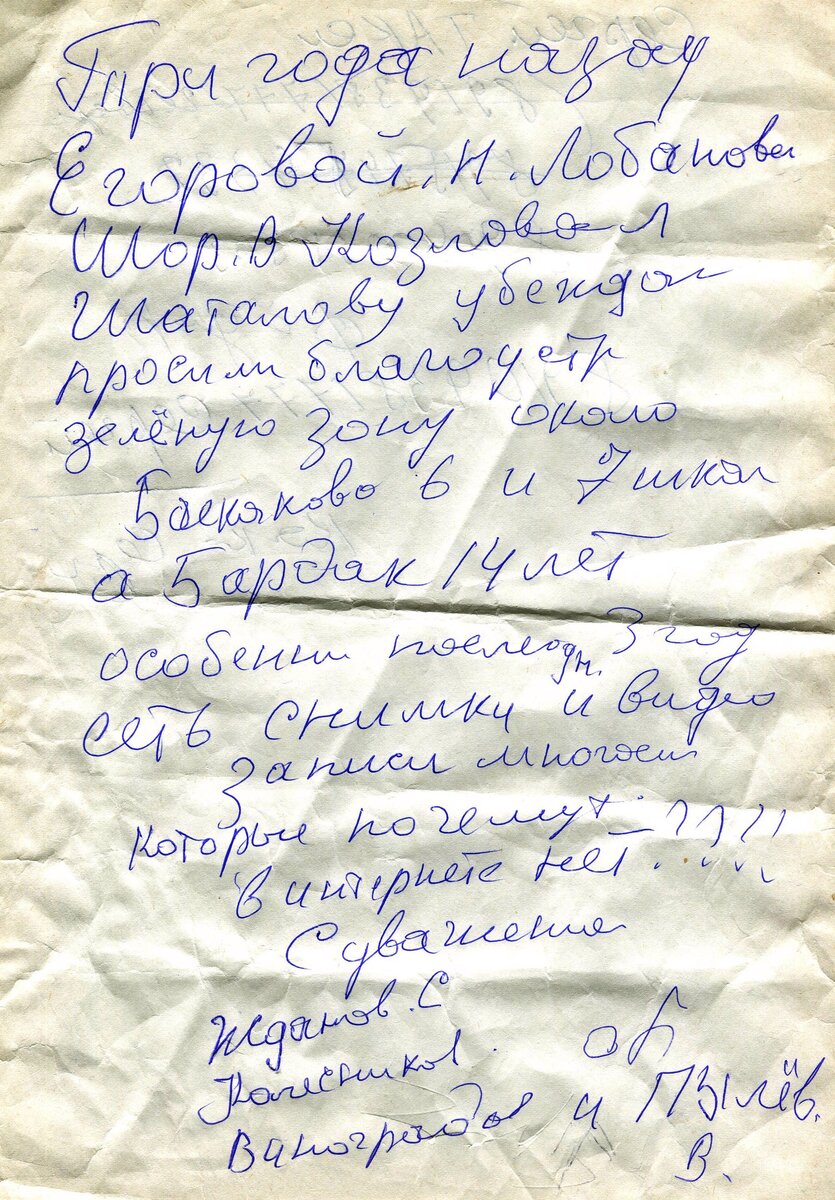 Три года назад
Егоровой. Н. Лобановой
Шор. В Козлова Л
Шаталову убеждал
просили благоустр
зелёную зону около
6 и 7 школ
а Бардак 14 лет
особенни последн. 3 год
сеть снимки и видео
записи
которые почему
в интернете нет ??!!
С уважение
Жданов. С
Колесников.
Виноградов и Пзылёв.
В.